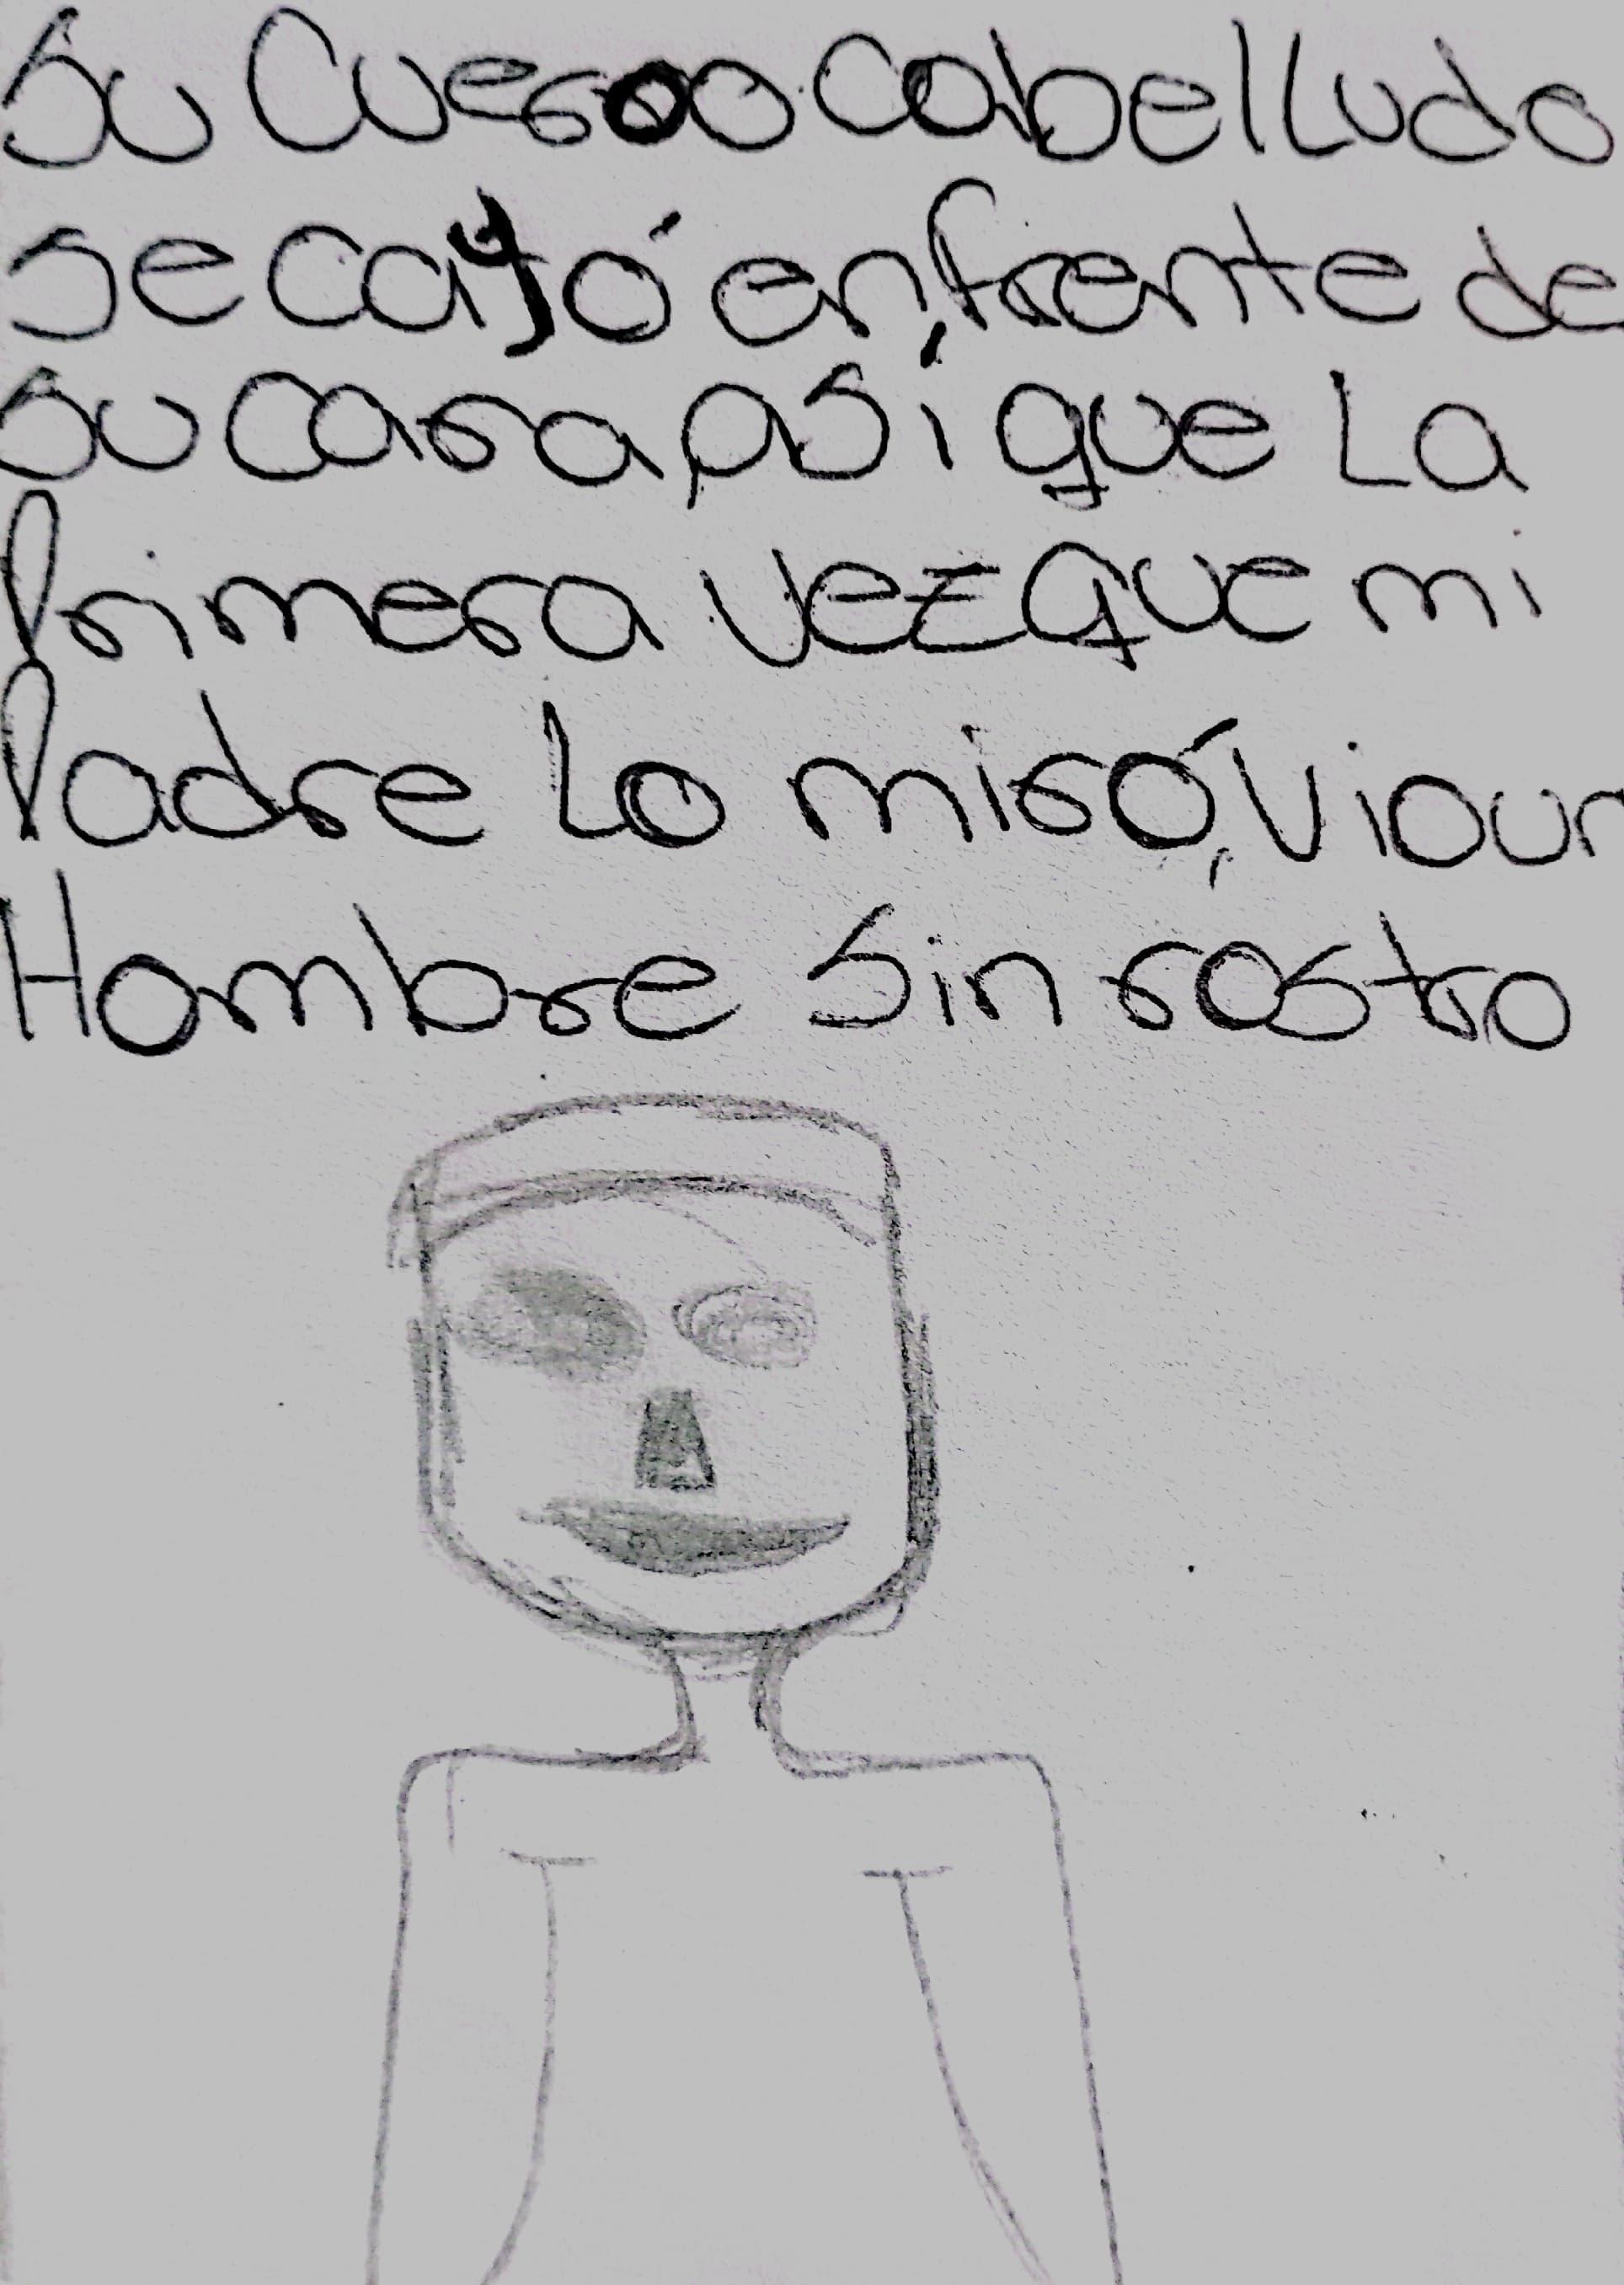 Su Cuero cabelludo
se cayó enfrente de
su cara, así que La
Primera vez que mi
Padre Lo miró, vio un
Hombre Sin rostro